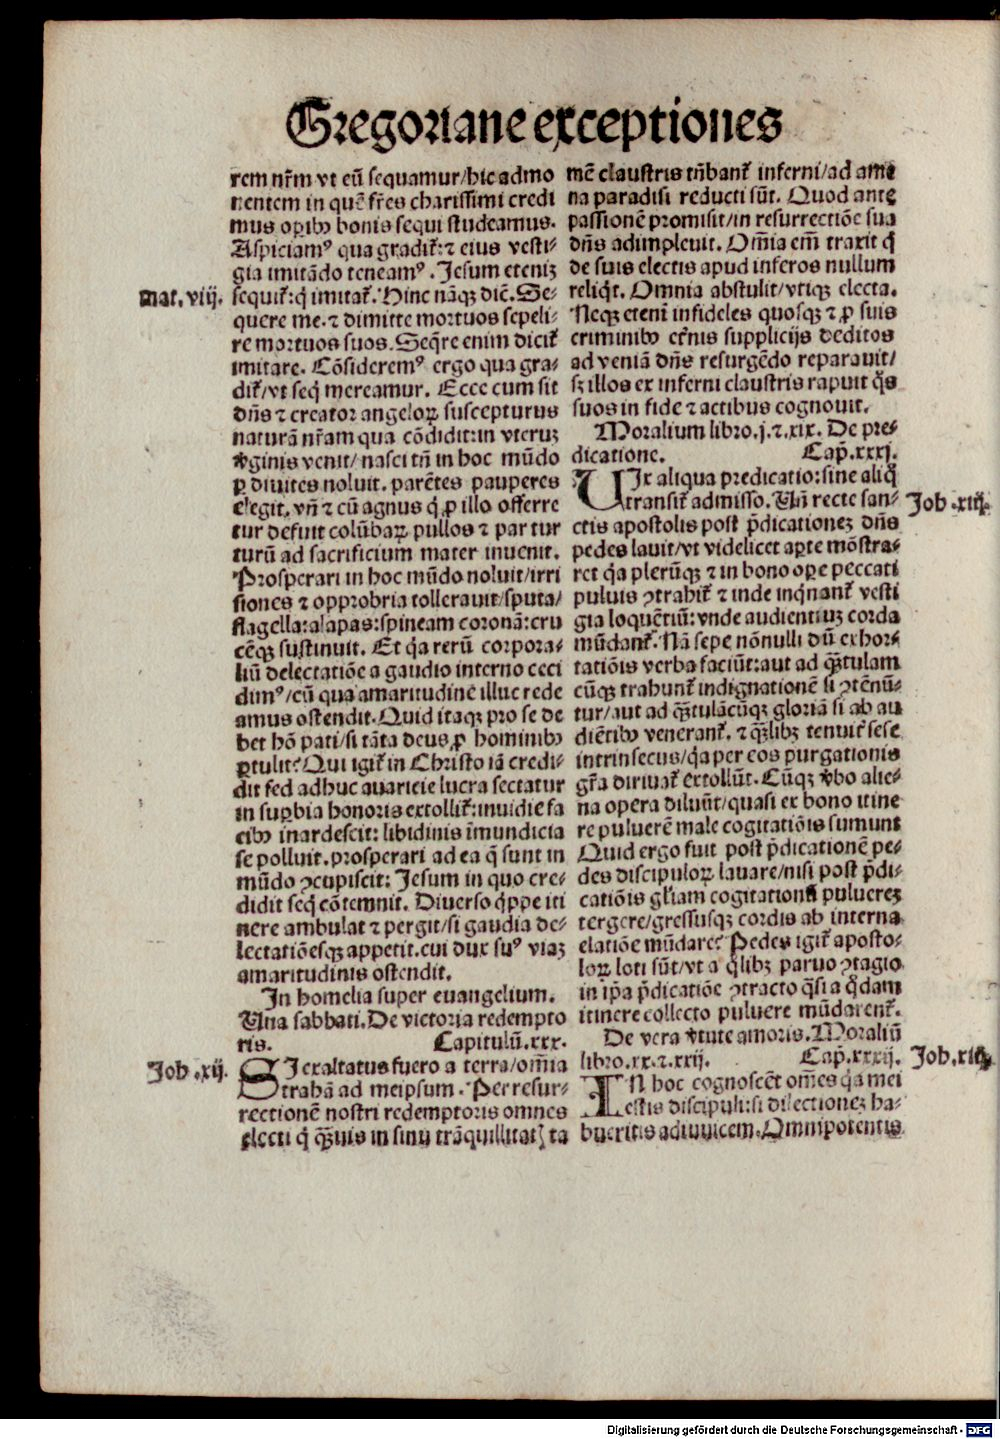 Gregoriane exceptiones
rem nr̃m vt eũ sequamur/hic admo
nentem in quẽ fr̃es charissimi credi
mus oꝑibꝰ bonis sequi studeamus.
Aspiciamꝰ qua gradit᷑:⁊ eius vesti⸗
gia imitãdo teneamꝰ. Jesum eteniz
mat. viij.
sequit᷑:q̇ imitat᷑. Hinc nãqꝫ dic̃. Se⸗
quere me.⁊ dimitte mortuos sepeli⸗
re mortuos suos. Seq̃re enim dicit᷑
imitare. Cõsideremꝰ ergo qua gra⸗
dit᷑/vt seq̇ mereamur. Ecce cum sit
dñs ⁊ creator angeloꝝ suscepturus
naturã nr̃am qua cõdidit:in vteruz
v̓ginis venit/nasci tñ in hoc mũdo
ꝑ diuites noluit. parẽtes pauperes
elegit. vñ ⁊ cũ agnus q̇ ꝓ illo offerre
tur defuit colũbaꝝ pullos ⁊ par tur
turũ ad sacrificium mater inuenit.
Prosperari in hoc mũdo noluit/irri
siones ⁊ opprobria tollerauit/sputa/
flagella:alapas:spineam coronã:cru
cẽqꝫ sustinuit. Et q̇a rerũ corpora⸗
liũ delectatiõe a gaudio interno ceci
dimꝰ/cũ qua amaritudine illuc rede
amus ostendit. Quid itaqꝫ pro se de
bet hõ pati/si tãta deus ꝓ hominibꝰ
ꝑtulit? Qui igit᷑ in Christo iã credi⸗
dit sed adhuc auaricie lucra sectatur
in suꝑbia honoris extollit᷑:inuidie fa
cibꝰ inardescit: libidinis ĩmundicia
se polluit. prosperari ad ea q̃ sunt in
mũdo ꝯcupiscit: Jesum in quo cre⸗
didit seq̇ cõtemnit. Diuerso q̇ppe iti
nere ambulat ⁊ pergit/si gaudia de⸗
lectatiõesqꝫ appetit.cui dux suꝰ viaz
amaritudinis ostendit.
In homelia super euangelium.
Una sabbati. De victoria redempto
ris. Capitulũ.xxx.
Joh .xij.
SI exaltatus fuero a terra/om̃ia
trahã ad meipsum. Per resur⸗
rectionẽ nostri redemptoris omnes
electi q̇ q̃ꝫuis in sinu trãquillitatꝭ ta
mẽ claustris tñ hant᷑ inferni/ad ame
na paradisi reducti sũt. Quod ante
passionẽ promisit/in resurrectiõe sua
dñs adimpleuit. Om̃ia em̃ traxit q̇
de suis electis apud inferos nullum
reliq̇t. Omnia abstulit/vtiqꝫ electa.
Neqꝫ eteni infideles quosqꝫ ⁊ ꝓ suis
criminibꝰ et̃nis supplicijs deditos
ad veniã dñs resurgẽdo reparauit/
sꝫ illos ex inferni claustris rapuit q̃s
suos in fide ⁊ actibus cognouit.
Moralium libro.j.⁊.xix. De pre⸗
dicatione. Cap̃.xxxj.
UIx aliqua predicatio:sine aliq̃
transit᷑ admisso. Uñ recte san⸗
ctis apostolis post p̃dicationez dñs
pedes lauit/vt videlicet aꝑte mõstra⸗
ret q̇a plerũqꝫ ⁊ in bono oꝑe peccati
puluis ꝯtrahit᷑ ⁊ inde inq̇nant᷑ vesti
gia loquẽtiũ: vnde audientiuz corda
mũdant᷑. Nã sepe nõnulli dũ exhor⸗
tatiõis verba faciũt:aut ad q̃ꝫtulam
cũqꝫ trahunt᷑ indignationẽ si ꝯtẽnũ⸗
tur/aut ad q̃ꝫtulãcũqꝫ gloriã si ab au
diẽtibꝰ venerant᷑. ⁊ q̃ꝫlibꝫ tenuit᷑ sese
intrinsecus/q̇a per eos purgationis
gr̃a diriuat᷑ extollũt. Cũqꝫ v̓bo alie⸗
na opera diluũt/quasi ex bono itine
re puluerẽ male cogitatiõis sumunt
Quid ergo fuit post p̃dicationẽ pe⸗
des discipuloꝝ lauare/nisi post p̃di⸗
catiõis gl̃iam cogitationũ puluerez
tergere/gressusqꝫ cordis ab interna
elatiõe mũdare? Pedes igit᷑ aposto⸗
loꝝ loti sũt/vt a q̇libꝫ paruo ꝯtagio
in ip̃a p̃dicatiõe ꝯtracto q̃si a q̇dam
itinere collecto puluere mũdarent᷑.
De vera v̓tute amoris. Moraliũ
libro.xx.⁊.xxij. Cap̃.xxxij.
IN hoc cognoscẽt om̃es q̇a mei
estis discipuli:si dilectionez ha⸗
bueritis adinuicem. Omnipotentis
Digitalisierung gefördert durch die Deutsche Forschungsgemeinschaft - DFG